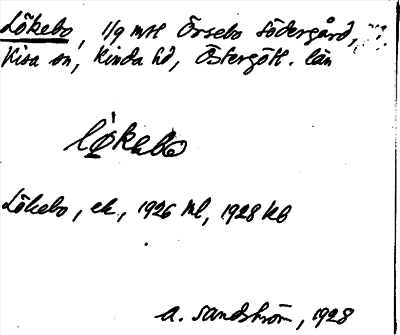 Lökebo, 1/9 mtl Örsebo Södergård,
Kisa sn, Kinda hd, Östergötl. län
Lökebo, ek, 1926 ml, 1928 kb
A. Sandström, 1928